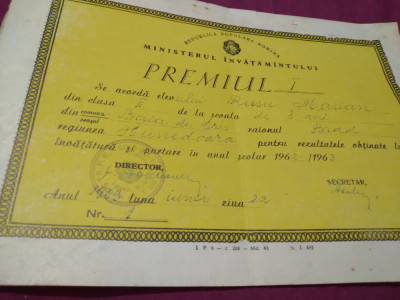 REPUBLICA POPULARĂ ROMÎNĂ
MINISTERUL ÎNVĂȚĂMÎNTULUI
PREMIUL I
Se acordă elevului Rusu Marian
din clasa de la școala de 8 ani
din comuna orașul Baia de Criș raionul Brad
regiunea Hunedoara pentru rezultatele obținute la
învățătură și purtare în anul școlar 1962/1963
DIRECTOR,
SECRETAR,
Anul 1963 luna iunie ziua 22
Nr.